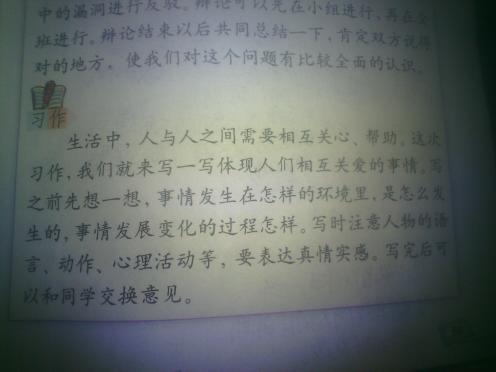 中的漏洞进行反驳。辩论可以先在小组进行,再在全
班进行。辩论结束以后共同总结一下,肯定双方说得
对的地方。使我们对这个问题有比较全面的认识。
习作
生活中,人与人之间需要相互关心、帮助。这次
习作,我们就来写一写体现人们相互关爱的事情。写
之前先想一想,事情发生在怎样的环境里,是怎么发
生的,事情发展变化的过程怎样。写时注意人物的语
言、动作、心理活动等,要表达真情实感。写完后可
以和同学交换意见。